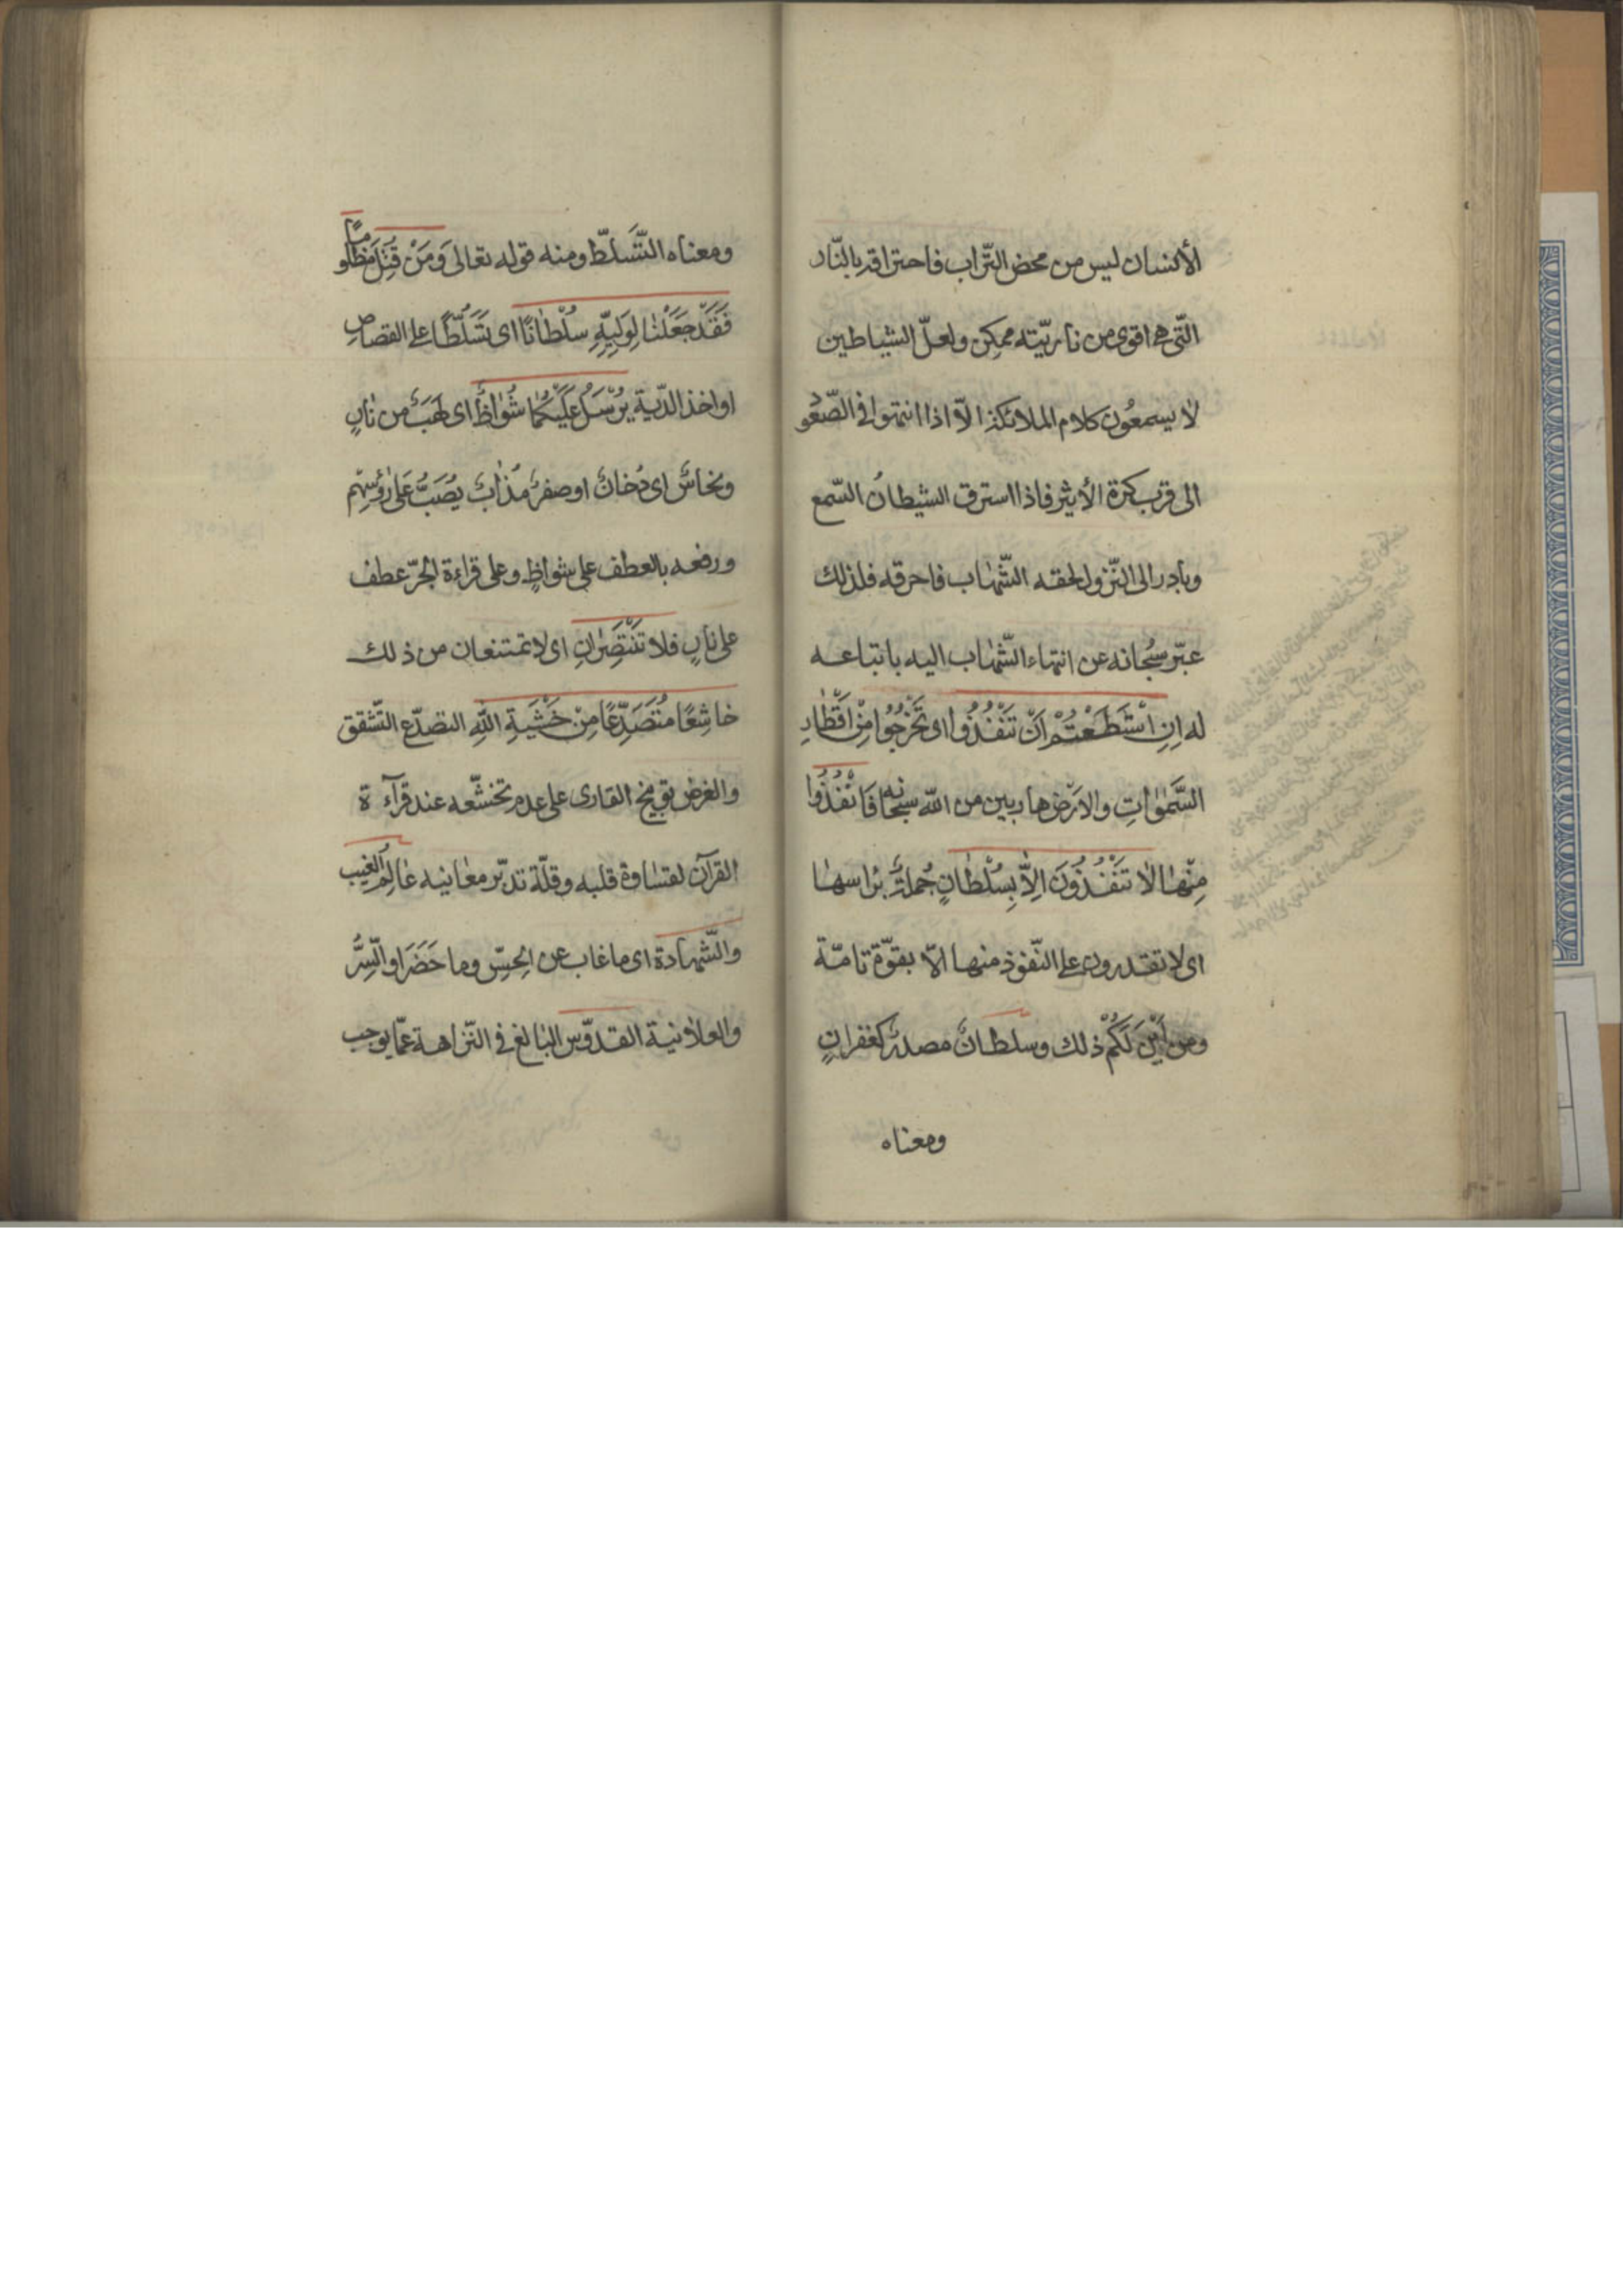 الأنسان ليس من محض التّراب فاحتراقه بالنّار
التّى هى اقوى من ناريّته ممكن ولعلّ الشياطين
لا يسمعُون كلام الملائكة الّا اذا انتهوا فى الصّعُو
الى قرب كرة الأثير فاذا استرق الشيطانُ السّمع
وبادر الى النّزول لحقه الشّهاب فاحرقه فلذلك
عبّر سبُحانه عن انتهاء الشّهاب اليه باتباعه
له اِنِ اسْتَطَعْتُمْ اَنْ تَنْفُذُوا اى تَخْرُجُوا مِنْ اَقْطٰارِ
السَّمٰوٰاتِ والارَضْ هاربين من اللّه سبحانه فَانْفُذُوا
مِنْهٰا لاٰ تَنْفُذُونَ اِلاّٰ بِسُلْطٰانٍ جُملةٌ براسهٰا
اى لا تقدرون على النّفوذ منها الّا بقوّة تامّة
ومن اَيْنَ لَكُمْ ذلك وسلطانٌ مصدرٌ كغفرانٍ
ومعناه
ومعناه التَّسَلطّ ومنه قوله تعالى وَمَنْ قُتِلَ مَظْلُومًا
فَقَدْ جَعَلْنٰا لِوَلِيِّهِ سُلْطٰانًا اى تَسَلّطًا على القصاصِ
او اخذ الدّية يُرْسَلُ عَلَيْكُمٰا شُوٰاظٌ اى لَهَبٌ من نٰارٍ
ونحاسٌ اى دُخانٌ او صفرٌ مُذٰابٌ يُصَبُّ عَلى رؤُسِهِم
ورفعه بالعطف على شواظٍ وعلى قراءة الجرّ عطف
على نارٍ فلا تَنْتَصِرٰانِ اى لا تمتنعان من ذلك
خاشِعًا مُتَصَدِّعًا مِنْ خَشْيَةِ اللّٰهِ التصدّع التّشقق
والغرض توبيخ القارى على عدم تخشّعه عند قرآءة
القرآن لقسٰاوة قلبه وقلّة تدبّر معٰانيه عٰالِمُ الْغَيبِ
والشّهادة اى ما غاب عن الحِسّ وما حَضَرَ او السِّرُّ
والعلاٰنية القدوّس البٰالغ فى النّزاهة عمّا يوجب